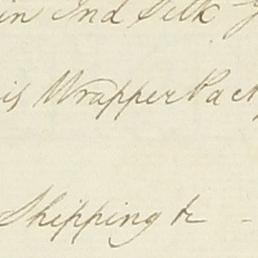 in Ind Silk
is Wrapper Pack
Shipping &c -